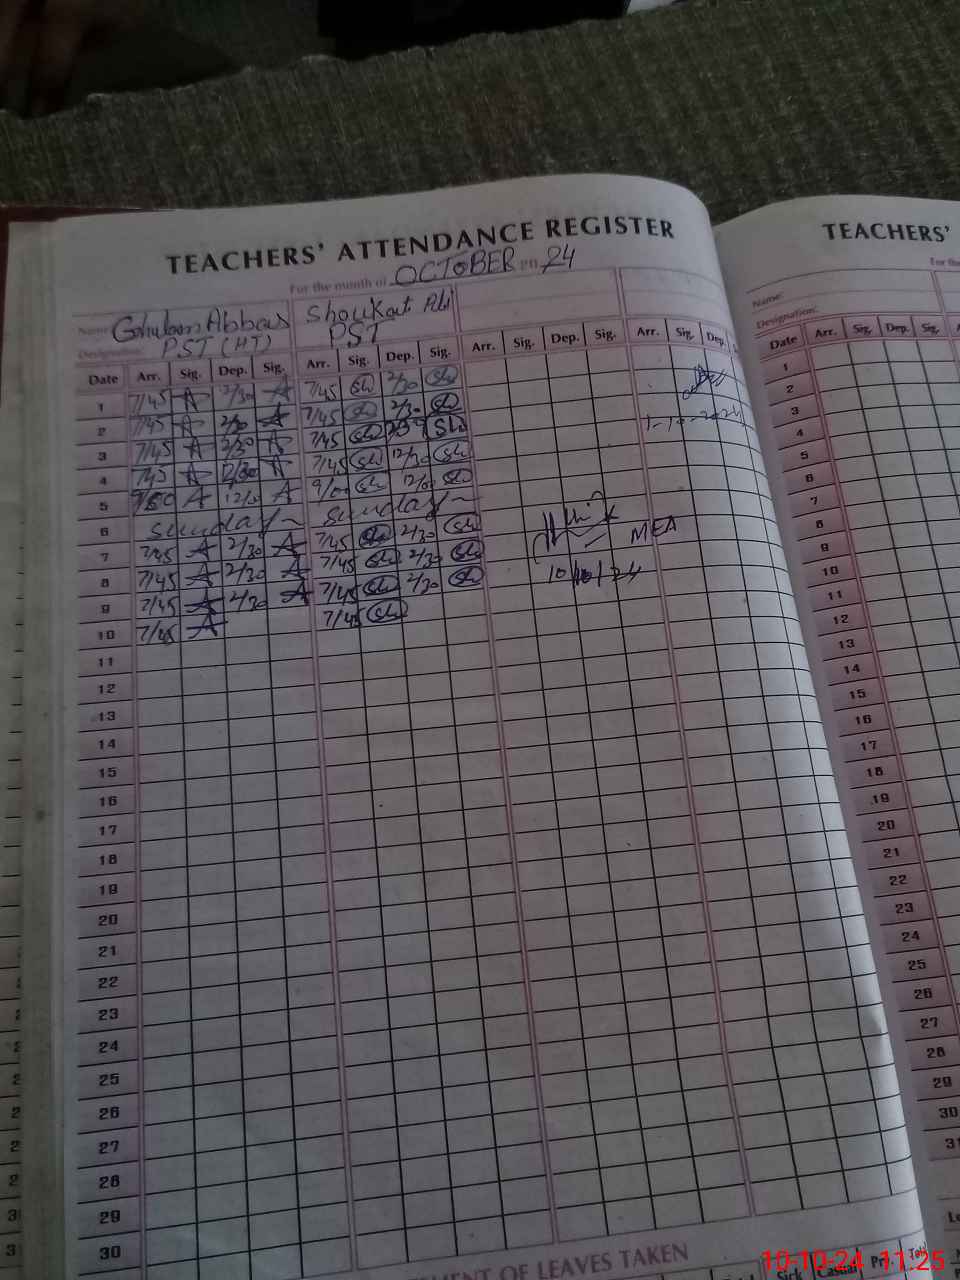 TEACHERS' ATTENDANCE REGISTER
For the month of OCTOBER 24
Name: Ghulam Abbas Shoukat Ali
Designation: PST (HT) PST
Date Arr. Sig. Dep. Sig. Arr. Sig. Dep. Sig. Arr. Sig. Dep. Sig. Arr. Sig. Dep.
1 7/45 A 2/30 A 7/45 Sh 2/30 Sh
2 7/45 A 2/30 A 7/45 Sh 2/30 Sh
1-10-2024
3 7/45 A 2/30 A 7/45 Sh Sh
4 7/45 A 12/30 A 7/45 Sh 12/30 Sh
5 A 12/0 A 9/00 Sh 12/0 Sh
6 Sunday Sunday
7 7/45 A 2/30 A 7/45 Sh 2/30 Sh
MEA
8 7/45 A 2/30 A 7/45 Sh 2/30 Sh
10/10/24
9 7/45 A 2/30 A 7/45 Sh 2/30 Sh
10 7/45 A 7/45 Sh
11
12
13
14
15
16
17
18
19
20
21
22
23
24
25
26
27
28
29
30
OF LEAVES TAKEN
Sick Casual
TEACHERS'
Name:
Designation:
Date Arr. Sig. Dep. Sig.
1
2
3
4
5
6
7
8
9
10
11
12
13
14
15
16
17
18
19
20
21
22
23
24
25
26
27
28
29
30
31
10-10-24 11:25